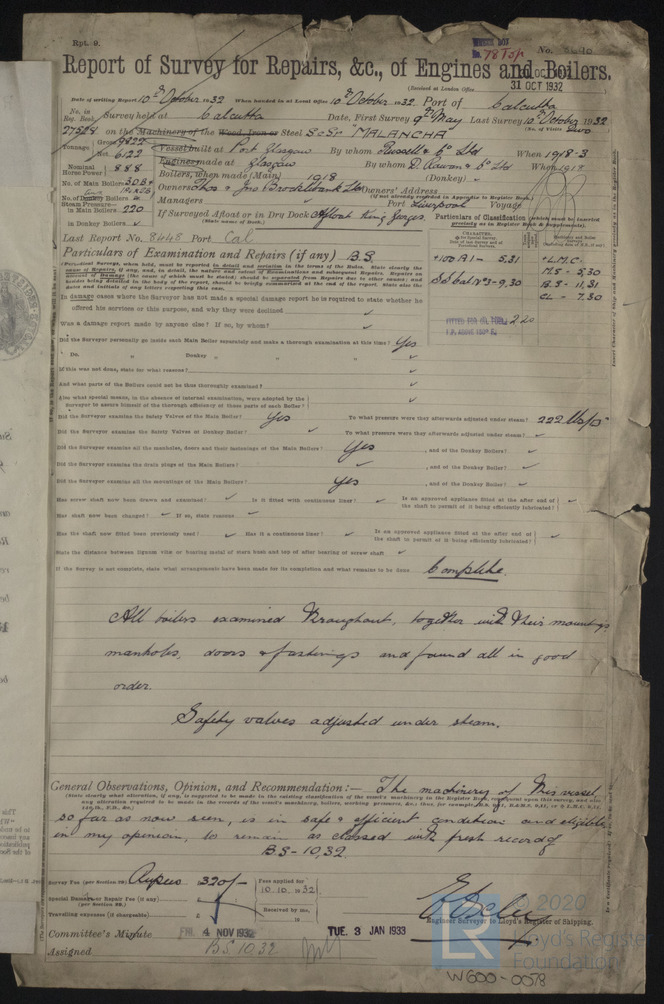 Rpt. 9.
WRECK BOX
No. 78 Top
No. 8690
Report of Survey for Repairs, &c., of Engines and Boilers.
(Received at London Office
31 OCT 1932
Date of writing Report 10th October 1932 When handed in at Local Office 10th October 1932 Port of Calcutta
No. in Reg. Book. Survey held at Calcutta Date, First Survey 9th May Last Survey 10th October 1932
(No. of Visits two)
27528 on the Machinery of the Wood, Iron or Steel S.S. MALANCHA
Tonnage Gross 9822
Net 6122
Vessel built at Port Glasgow By whom Russell & Co Ltd When 1918-3
Nominal Horse Power 888
Engines made at Glasgow By whom D. Rowan & Co Ltd When 1917
Boilers, when made (Main) 1918 (Donkey)
No. of Main Boilers
No. of Donkey Boilers
Owners Thos & Jno Brocklebank Ltd Owners' Address
(If not already recorded in Appendix to Register Book.)
Managers Port Liverpool Voyage
Steam Pressure—
in Main Boilers 220
in Donkey
If Surveyed Afloat or in Dry Dock Afloat King Georges
(State name of Dock.)
Particulars of Classification (which must be inserted precisely as in Register Book & Supplements).
Last Report No. 8448 Port Cal
Particulars of Examination and Repairs (if any) B.S.
+100 A1 - 5,31
S.S. Cal. No 3-9,30
+L.M.C.
M.S - 5,30
B.S - 11,31
CL - 7.30
FITTED FOR OIL FUEL 2.20
F.P. ABOVE 150° F.
In damage cases where the Surveyor has not made a special damage report he is required to state whether he
offered his services for this purpose, and why they were declined
Was a damage report made by anyone else? If so, by whom?
Did the Surveyor personally go inside each Main Boiler separately and make a thorough examination at this time? Yes
Do. " Donkey "
If this was not done, state for what reasons?
And what parts of the Boilers could not be thoroughly examined?
Also what special means, in the absence of internal examination, were adopted by the
Surveyor to assure himself of the thorough efficiency of those parts of each Boiler?
Did the Surveyor examine the Safety Valves of the Main Boiler? Yes To what pressure were they afterwards adjusted under steam? 222 lbs/□"
Did the Surveyor examine the Safety Valves of Donkey Boiler? To what pressure were they afterwards adjusted under steam?
Did the Surveyor examine all the manholes, doors and their fastenings of the Main Boilers? Yes , and of the Donkey Boilers?
Did the Surveyor examine the drain plugs of the Main Boilers? , and of the Donkey Boiler?
Did the Surveyor examine all the mountings of the Main Boilers? Yes , and of the Donkey Boiler?
Has screw shaft now been drawn and examined? Is it fitted with continuous liner? Is an approved appliance fitted at the after end of
the shaft to permit of it being efficiently lubricated?
Has shaft now been changed? If so, state reasons
Has the shaft now fitted been previously used? Has it a continuous liner? Is an approved appliance fitted at the after end of
the shaft to permit of it being efficiently lubricated?
State the distance between lignum vitæ or bearing metal of stern bush and top of after bearing of screw shaft
If the Survey is not complete, state what arrangements have been made for its completion and what remains to be done Complete.
All boilers examined throughout, together with their mountings
manholes, doors & fastenings and found all in good
order.
Safety valves adjusted under steam.
General Observations, Opinion, and Recommendation:— The machinery of this vessel,
so far as now seen, is in safe & efficient condition and eligible,
in my opinion, to remain as classed with fresh record of
BS - 10,32.
Survey Fee (per Section 29) Rupees 320/-
Fee applied for
10.10.1932
Special Damage or Repair Fee (if any)
(per Section 29.)
Travelling expenses (if chargeable)
Received by me,
19
Engineer Surveyor to Lloyd's Register of Shipping.
Committee's Minute FRI. 4 NOV 1932 TUE. 3 JAN 1933
Assigned B.S. 10,32
© 2020
Lloyd's Register
Foundation
W600-0078